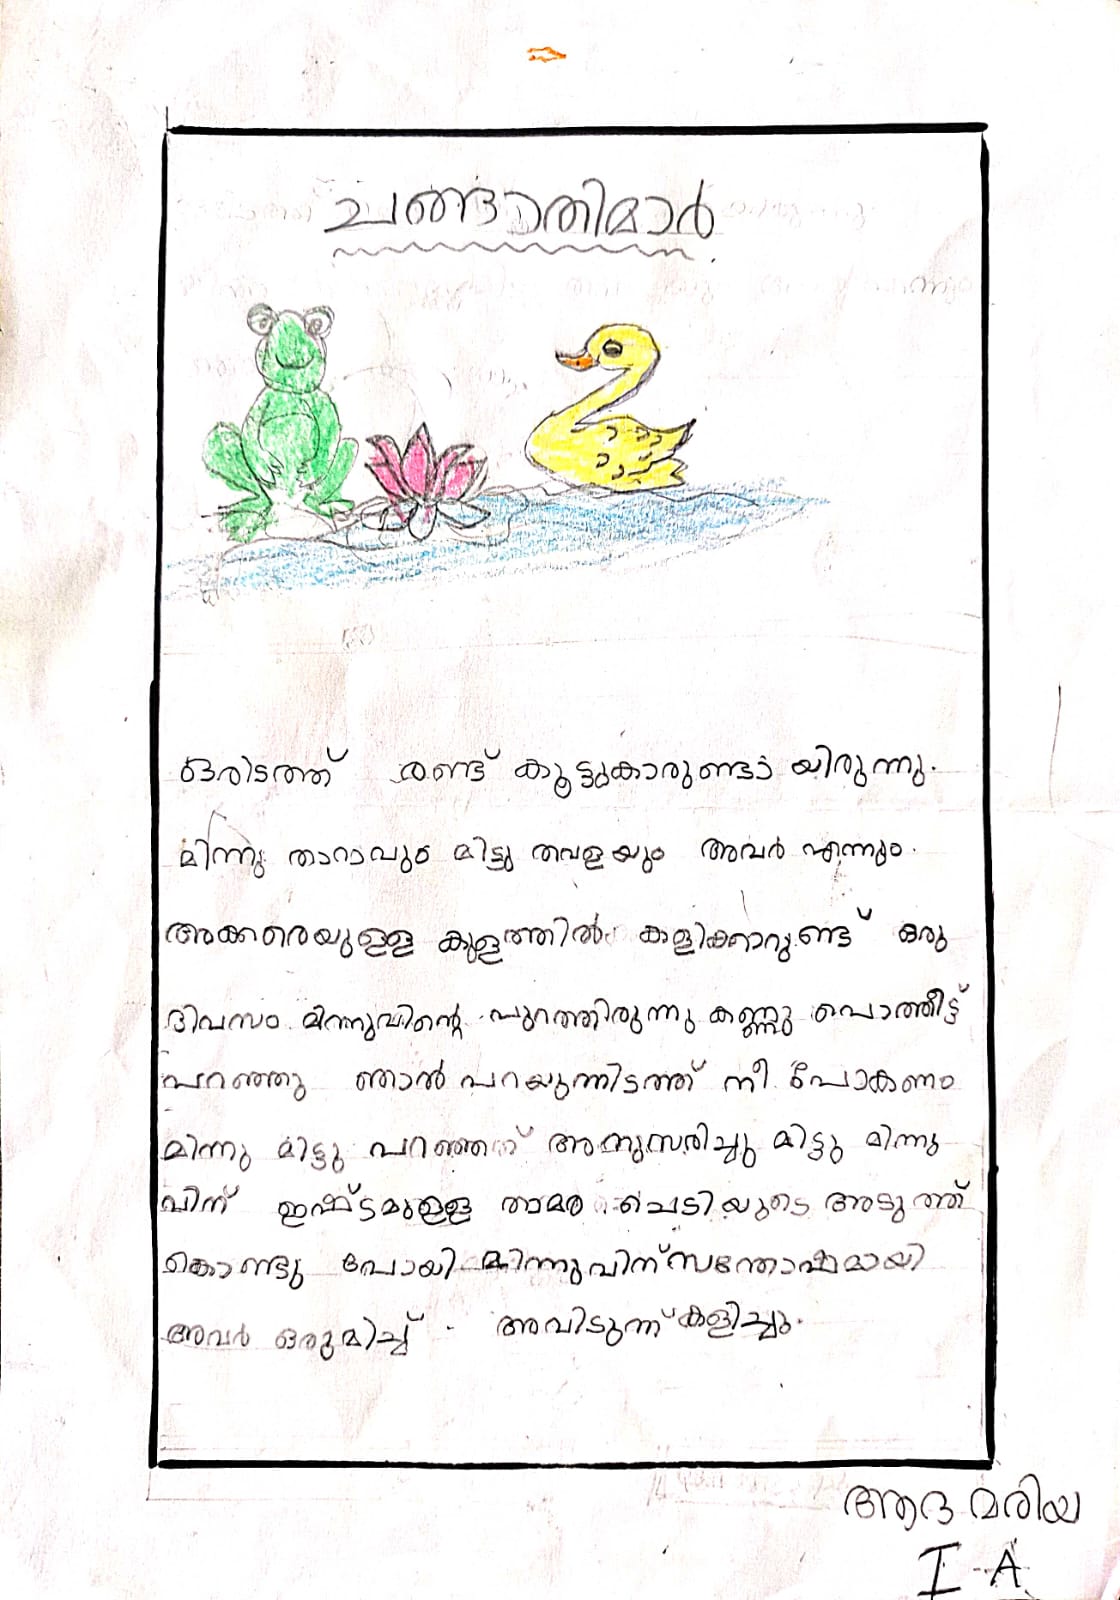 ചങ്ങാതിമാർ
ഒരിടത്ത് രണ്ട് കൂട്ടുകാരുണ്ടാ യിരുന്നു.
മിന്നു താറാവും മിട്ടു തവളയും അവർ എന്നും.
അക്കരെയുള്ള കുളത്തിൽ കളിക്കാറുണ്ട് ഒരു
ദിവസം മിന്നുവിന്റെ പുറത്തിരുന്നു കണ്ണു പൊത്തീട്ട്
പറഞ്ഞു ഞാൻ പറയുന്നിടത്ത് നീ പോകണം
മിന്നു മിട്ടു പറഞ്ഞത് അനുസരിച്ചു മിട്ടു മിന്നു
വിന് ഇഷ്ടമുള്ള താമര ചെടിയുടെ അടുത്ത്
കൊണ്ടു പോയി മിന്നുവിന് സന്തോഷമായി
അവർ ഒരുമിച്ച് അവിടുന്ന് കളിച്ചു.
ആദ മരിയ
I - A